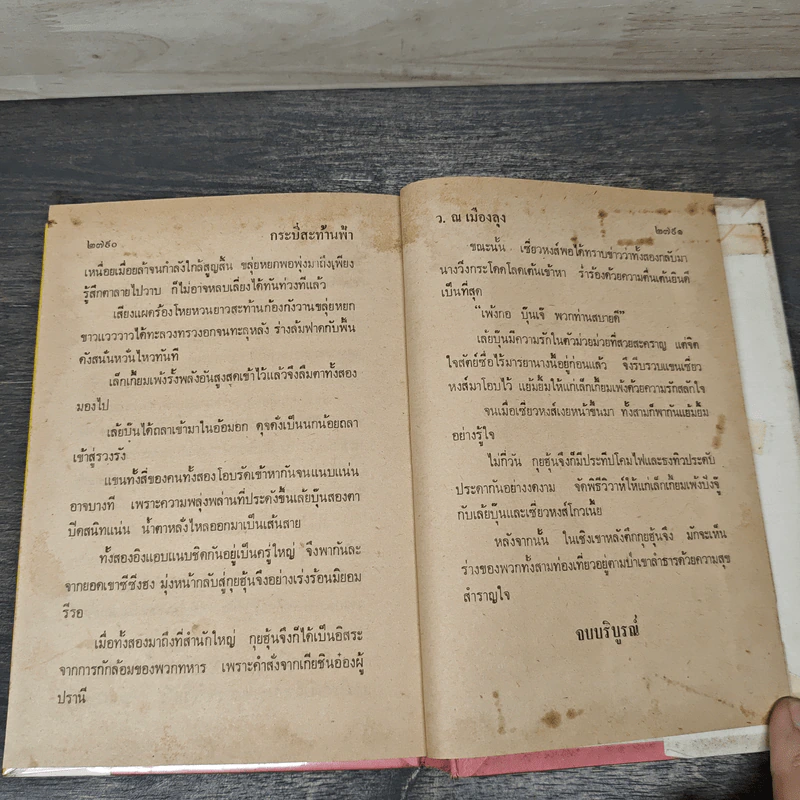 ๒๗๙๐
กระบี่สะท้านฟ้า
เหนื่อยเมื่อยล้าจนกำลังใกล้สูญสิ้น ขลุ่ยหยกพอพุ่งมาถึงเพียง
รู้สึกตาลายไปวาบ ก็ไม่อาจหลบเลี่ยงได้ทันท่วงทีแล้ว
เสียงแผดร้องโหยหวนยาวสะท้านก้องกังวานขลุ่ยหยก
ขาวแวววาวได้ทะลวงทรวงอกจนทะลุหลัง ร่างล้มฟาดกับพื้น
ดังสนั่นหวั่นไหวทันที
เล็กเกี้ยมเพ้งรั้งพลังอันสูงสุดเข้าไว้แล้วจึงลืมตาทั้งสอง
มองไป
เล้ยบุ๊นได้ถลาเข้ามาในอ้อมอก ดุจดั่งเป็นนกน้อยถลา
เข้าสู่รวงรัง
แขนทั้งสี่ของคนทั้งสองโอบรัดเข้าหากันจนแนบแน่น
อาจบางที เพราะความพลุ่งพล่านที่ประดังขึ้นเล้ยบุ๊นสองตา
ปิดสนิทแน่น น้ำตาหลั่งไหลออกมาเป็นเส้นสาย
ทั้งสองอิงแอบแนบชิดกันอยู่เป็นครู่ใหญ่ จึงพากันละ
จากยอดเขาซีซึงฮง มุ่งหน้ากลับสู่กุยฮุ้นจึงอย่างเร่งร้อนมิยอม
รีรอ
เมื่อทั้งสองมาถึงที่สำนักใหญ่ กุยฮุ้นจึงก็ได้เป็นอิสระ
จากการกักล้อมของพวกทหาร เพราะคำสั่งจากเกียชินอ๋องผู้
ปรานี
ว. ณ เมืองลุง
๒๗๙๑
ขณะนั้น เซี่ยวหงส์พอได้ทราบข่าวว่าทั้งสองกลับมา
นางวิ่งกระโดดโลดเต้นเข้าหา ร่ำร้องด้วยความตื่นเต้นยินดี
เป็นที่สุด
"เพ้งกอ บุ๊นเจ๊ พวกท่านสบายดี"
เล้ยบุ๊นมีความรักในตัวม่วยม่วยที่สวยสะคราญ แต่จิต
ใจสัตย์ซื่อไร้มารยานางนี้อยู่ก่อนแล้ว จึงรีบรวบแขนเซี่ยว
หงส์มาโอบไว้ แย้มยิ้มให้แก่เล็กเกี้ยมเพ้งด้วยความรักสลักใจ
จนเมื่อเซี่ยวหงส์เงยหน้าขึ้นมา ทั้งสามก็พากันแย้มยิ้ม
อย่างรู้ใจ
ไม่กี่วัน กุยฮุ้นจึงก็มีประทีปโคมไฟและธงทิวประดับ
ประดากันอย่างงดงาม จัดพิธีวิวาห์ให้แก่เล็กเกี้ยมเพ้งบึงจู๊
กับเล้ยบุ๊นและเซี่ยวหงส์โกวเนี้ย
หลังจากนั้น ในเชิงเขาหลังตึกกุยฮุ้นจึง มักจะเห็น
ร่างของพวกทั้งสามท่องเที่ยวอยู่ตามป่าเขาลำธารด้วยความสุข
สำราญใจ
จบบริบูรณ์